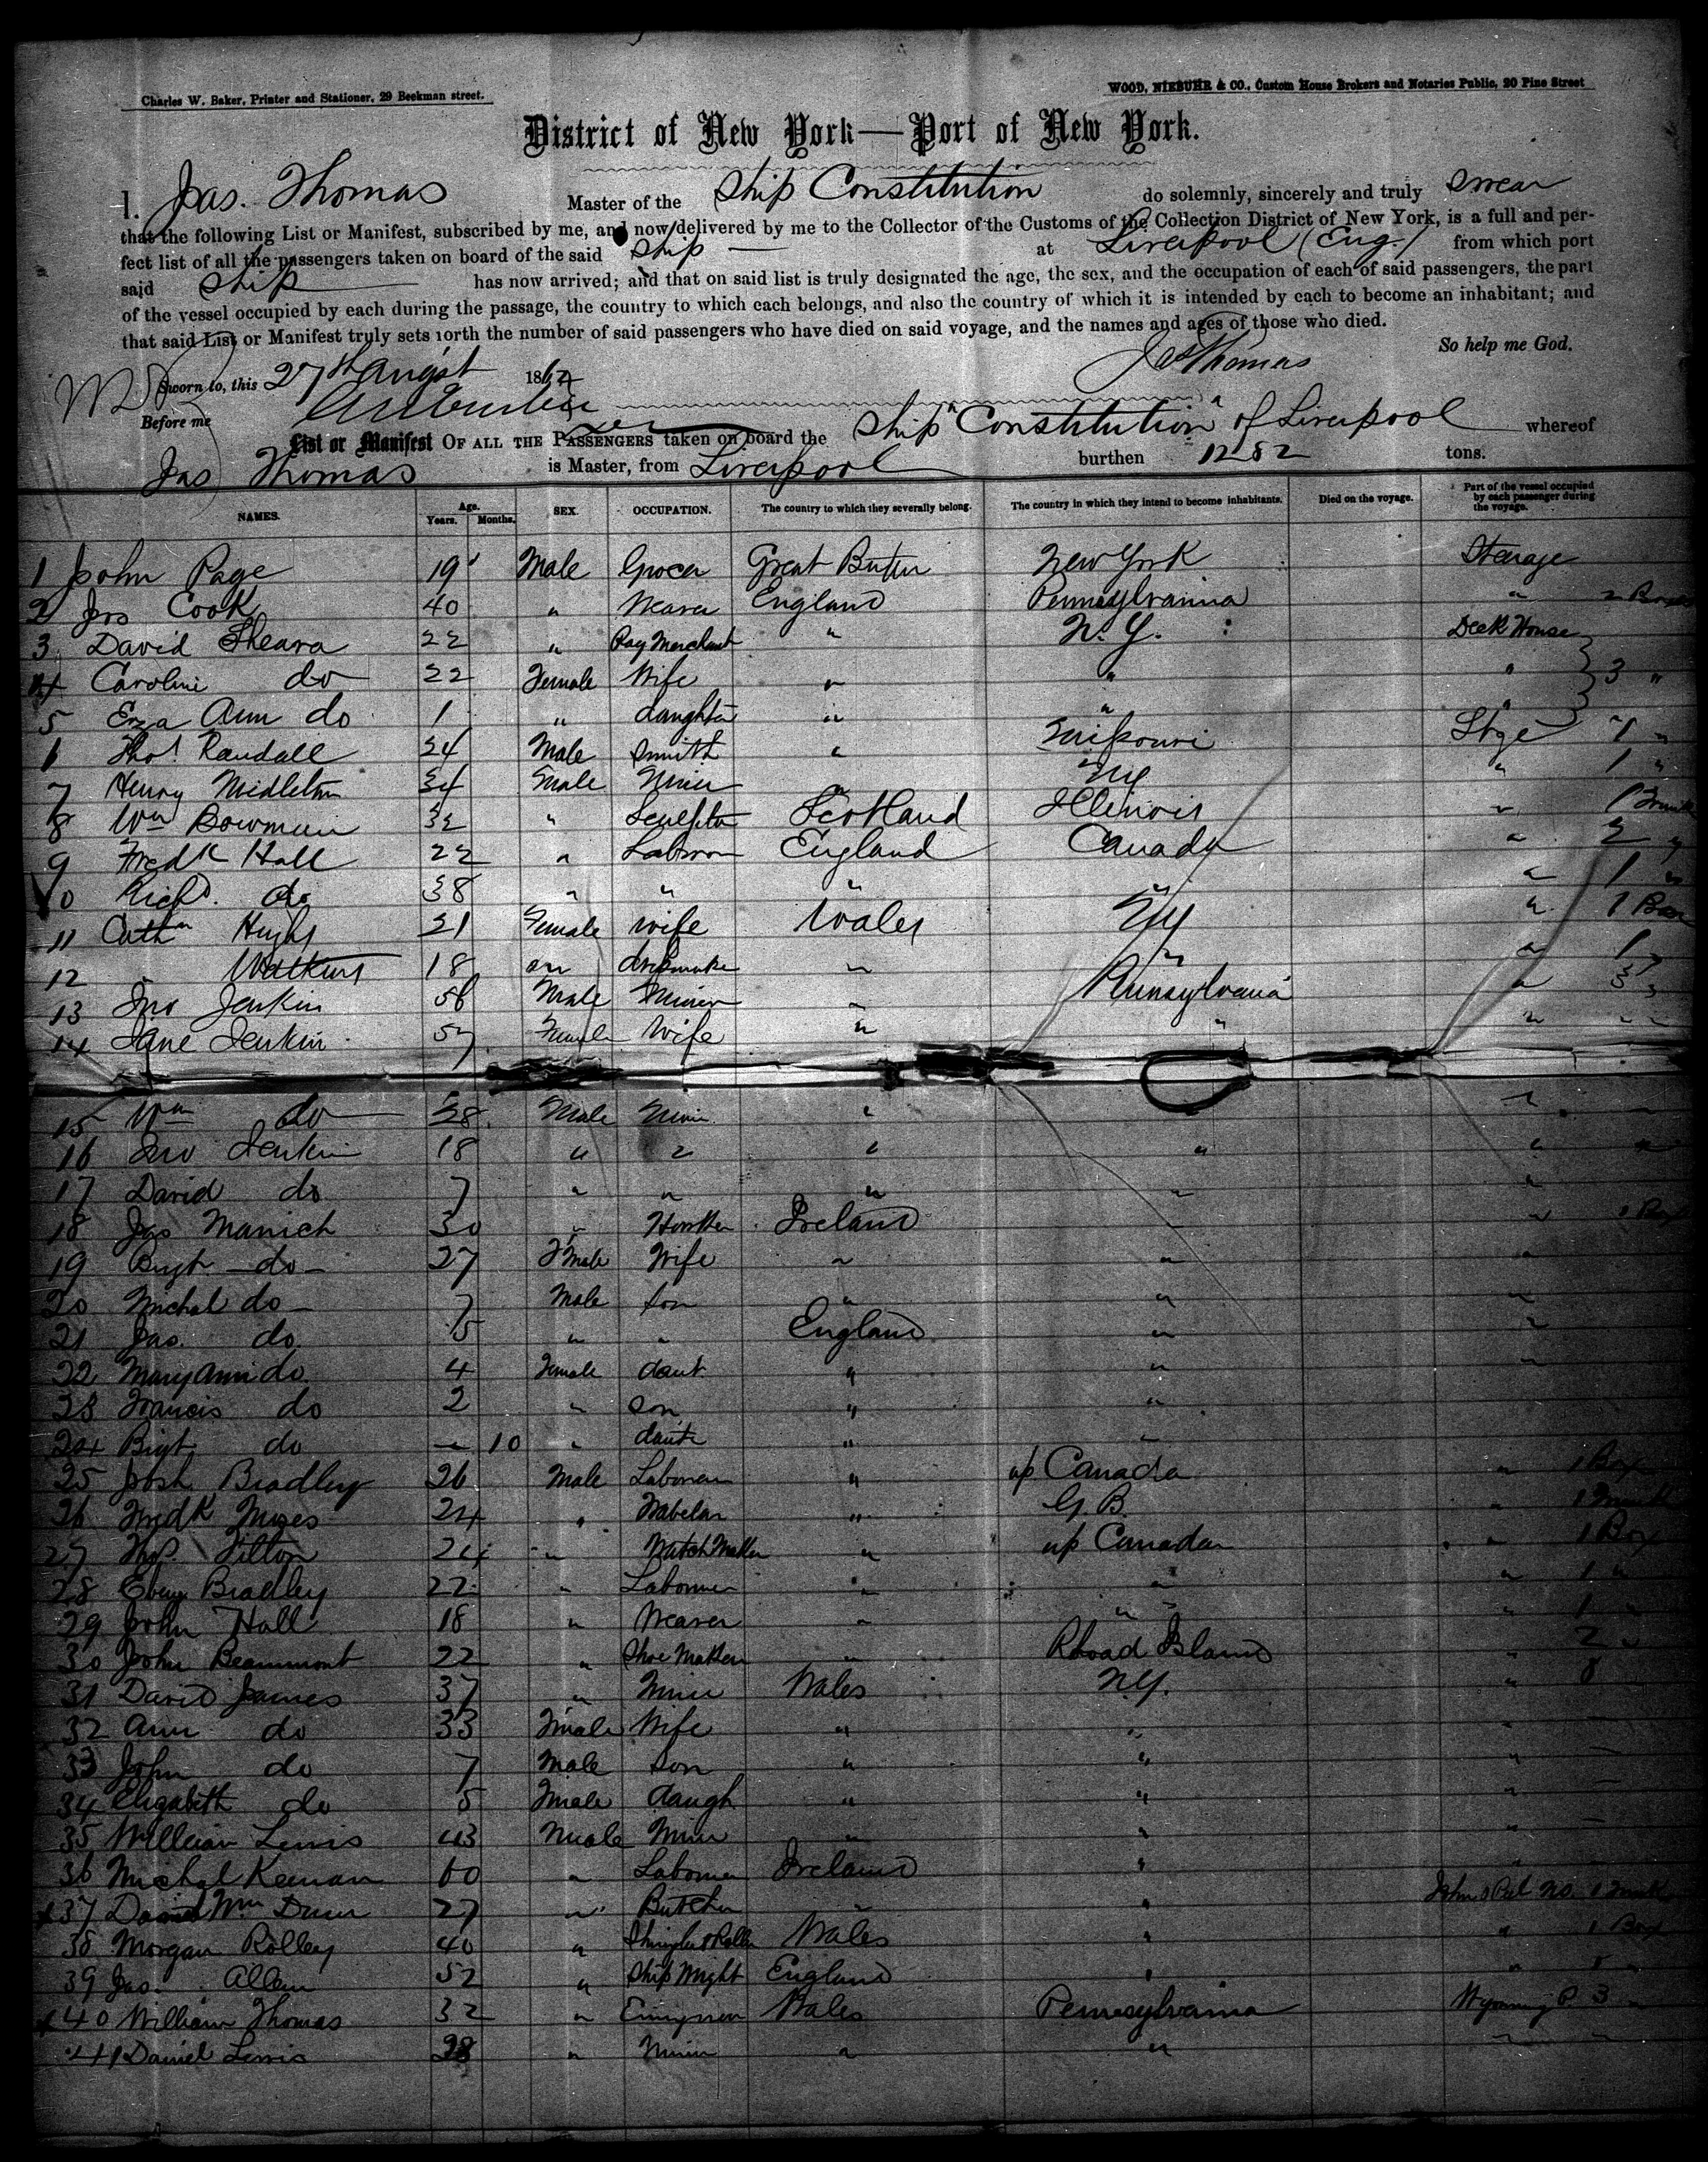 Charles W. Baker, Printer and Stationer, 29 Beekman street.
WOOD, NIEBUHR & CO., Custom House Brokers and Notaries Public, 20 Pine Street
District of New York—Port of New York.
I. Jas. Thomas Master of the Ship Constitution do solemnly, sincerely and truly swear
that the following List or Manifest, subscribed by me, and now delivered by me to the Collector of the Customs of the Collection District of New York, is a full and per-
fect list of all the passengers taken on board of the said Ship at Liverpool (Eng.) from which port
said Ship has now arrived; and that on said list is truly designated the age, the sex, and the occupation of each of said passengers, the part
of the vessel occupied by each during the passage, the country to which each belongs, and also the country of which it is intended by each to become an inhabitant; and
that said List or Manifest truly sets forth the number of said passengers who have died on said voyage, and the names and ages of those who died.
So help me God.
Jas Thomas
Sworn to, this 27th August 186
Before me
List or Manifest OF ALL THE PASSENGERS taken on board the Ship "Constitution" of Liverpool whereof
Jas Thomas is Master, from Liverpool burthen 1282 tons.
NAMES. Age. Years. Months. SEX. OCCUPATION. The country to which they severally belong. The country in which they intend to become inhabitants. Died on the voyage. Part of the vessel occupied by each passenger during the voyage.
1 John Page 19 Male Grocer Great Britn New York Steerage
2 Jos Cook 40 " Weaver England Pennsylvannia " 2 Boxes
3 David Sheara 22 " Rag Merchant " N. Y. Deck House
4 Caroline do 22 Female Wife " " " 3 "
5 Eza Ann do 1 " daughter " " "
6 Thos Randall 34 Male Smith " Missouri Stge 1 "
7 Henry Midleton 34 Male Miner " NY " 1 "
8 Wm Bowman 32 " Sculptor Scotland Illinois " 1 Trunk
9 Fredk Hall 22 " Laborer England Canada " 2 "
10 Richd. do 38 " " " " 1 "
11 Cathn Hughs 31 Female Wife Wales NY " 1 Box
12 " Watkins 18 dressmaker " " " 1 "
13 Jno Jenkin 56 Male Miner " Pennsylvania " 3 "
14 Jane Jenkin 57 Female Wife " " " "
15 Wm do 28 Male Miner " "
16 Jno Jenkin 18 " " " " "
17 David do 7 " " " " "
18 Jas Manich 30 " Ireland " " 1 Box
19 Brigt do 27 Fmale Wife " " "
20 Michal do 7 Male Son " " "
21 Jas. do 5 " " England " "
22 Mary Ann do 4 Female daut. " " "
23 Francis do 2 " Son " "
24 Brigt do — 10 " daute " "
25 Josh Bradley 26 Male Laborer " up Canada " 1 Box
26 Fredk 24 " " G. B. " 1 Trunk
27 Thos. Tilton 24 " Watch Maker " up Canada " 1 Box
28 Ebenr Bradley 22 " Labourer " " " 1 "
29 John Hall 18 " Weaver " " " 1 "
30 John Beaumont 22 " Shoe Maker " Rhoad Island 2 "
31 David James 37 " Miner Wales N.Y. " 8
32 Ann do 33 Fmale Wife " " "
33 John do 7 Male Son " " "
34 Elizabeth do 5 Fmale daugh " " "
35 William Lewis 43 Male Miner " " "
36 Michal Keenan 60 " Labourer Ireland " "
37 Wm 27 " Butcher " " 1 Trunk
38 Morgan Rolley 40 " Wales " " 1 Box
39 Jas. Allen 52 " Ship Wright England " "
40 William Thomas 32 " Wales Pennsylvania Wyoming 3 "
41 Daniel Lewis 28 " Miner " " " "